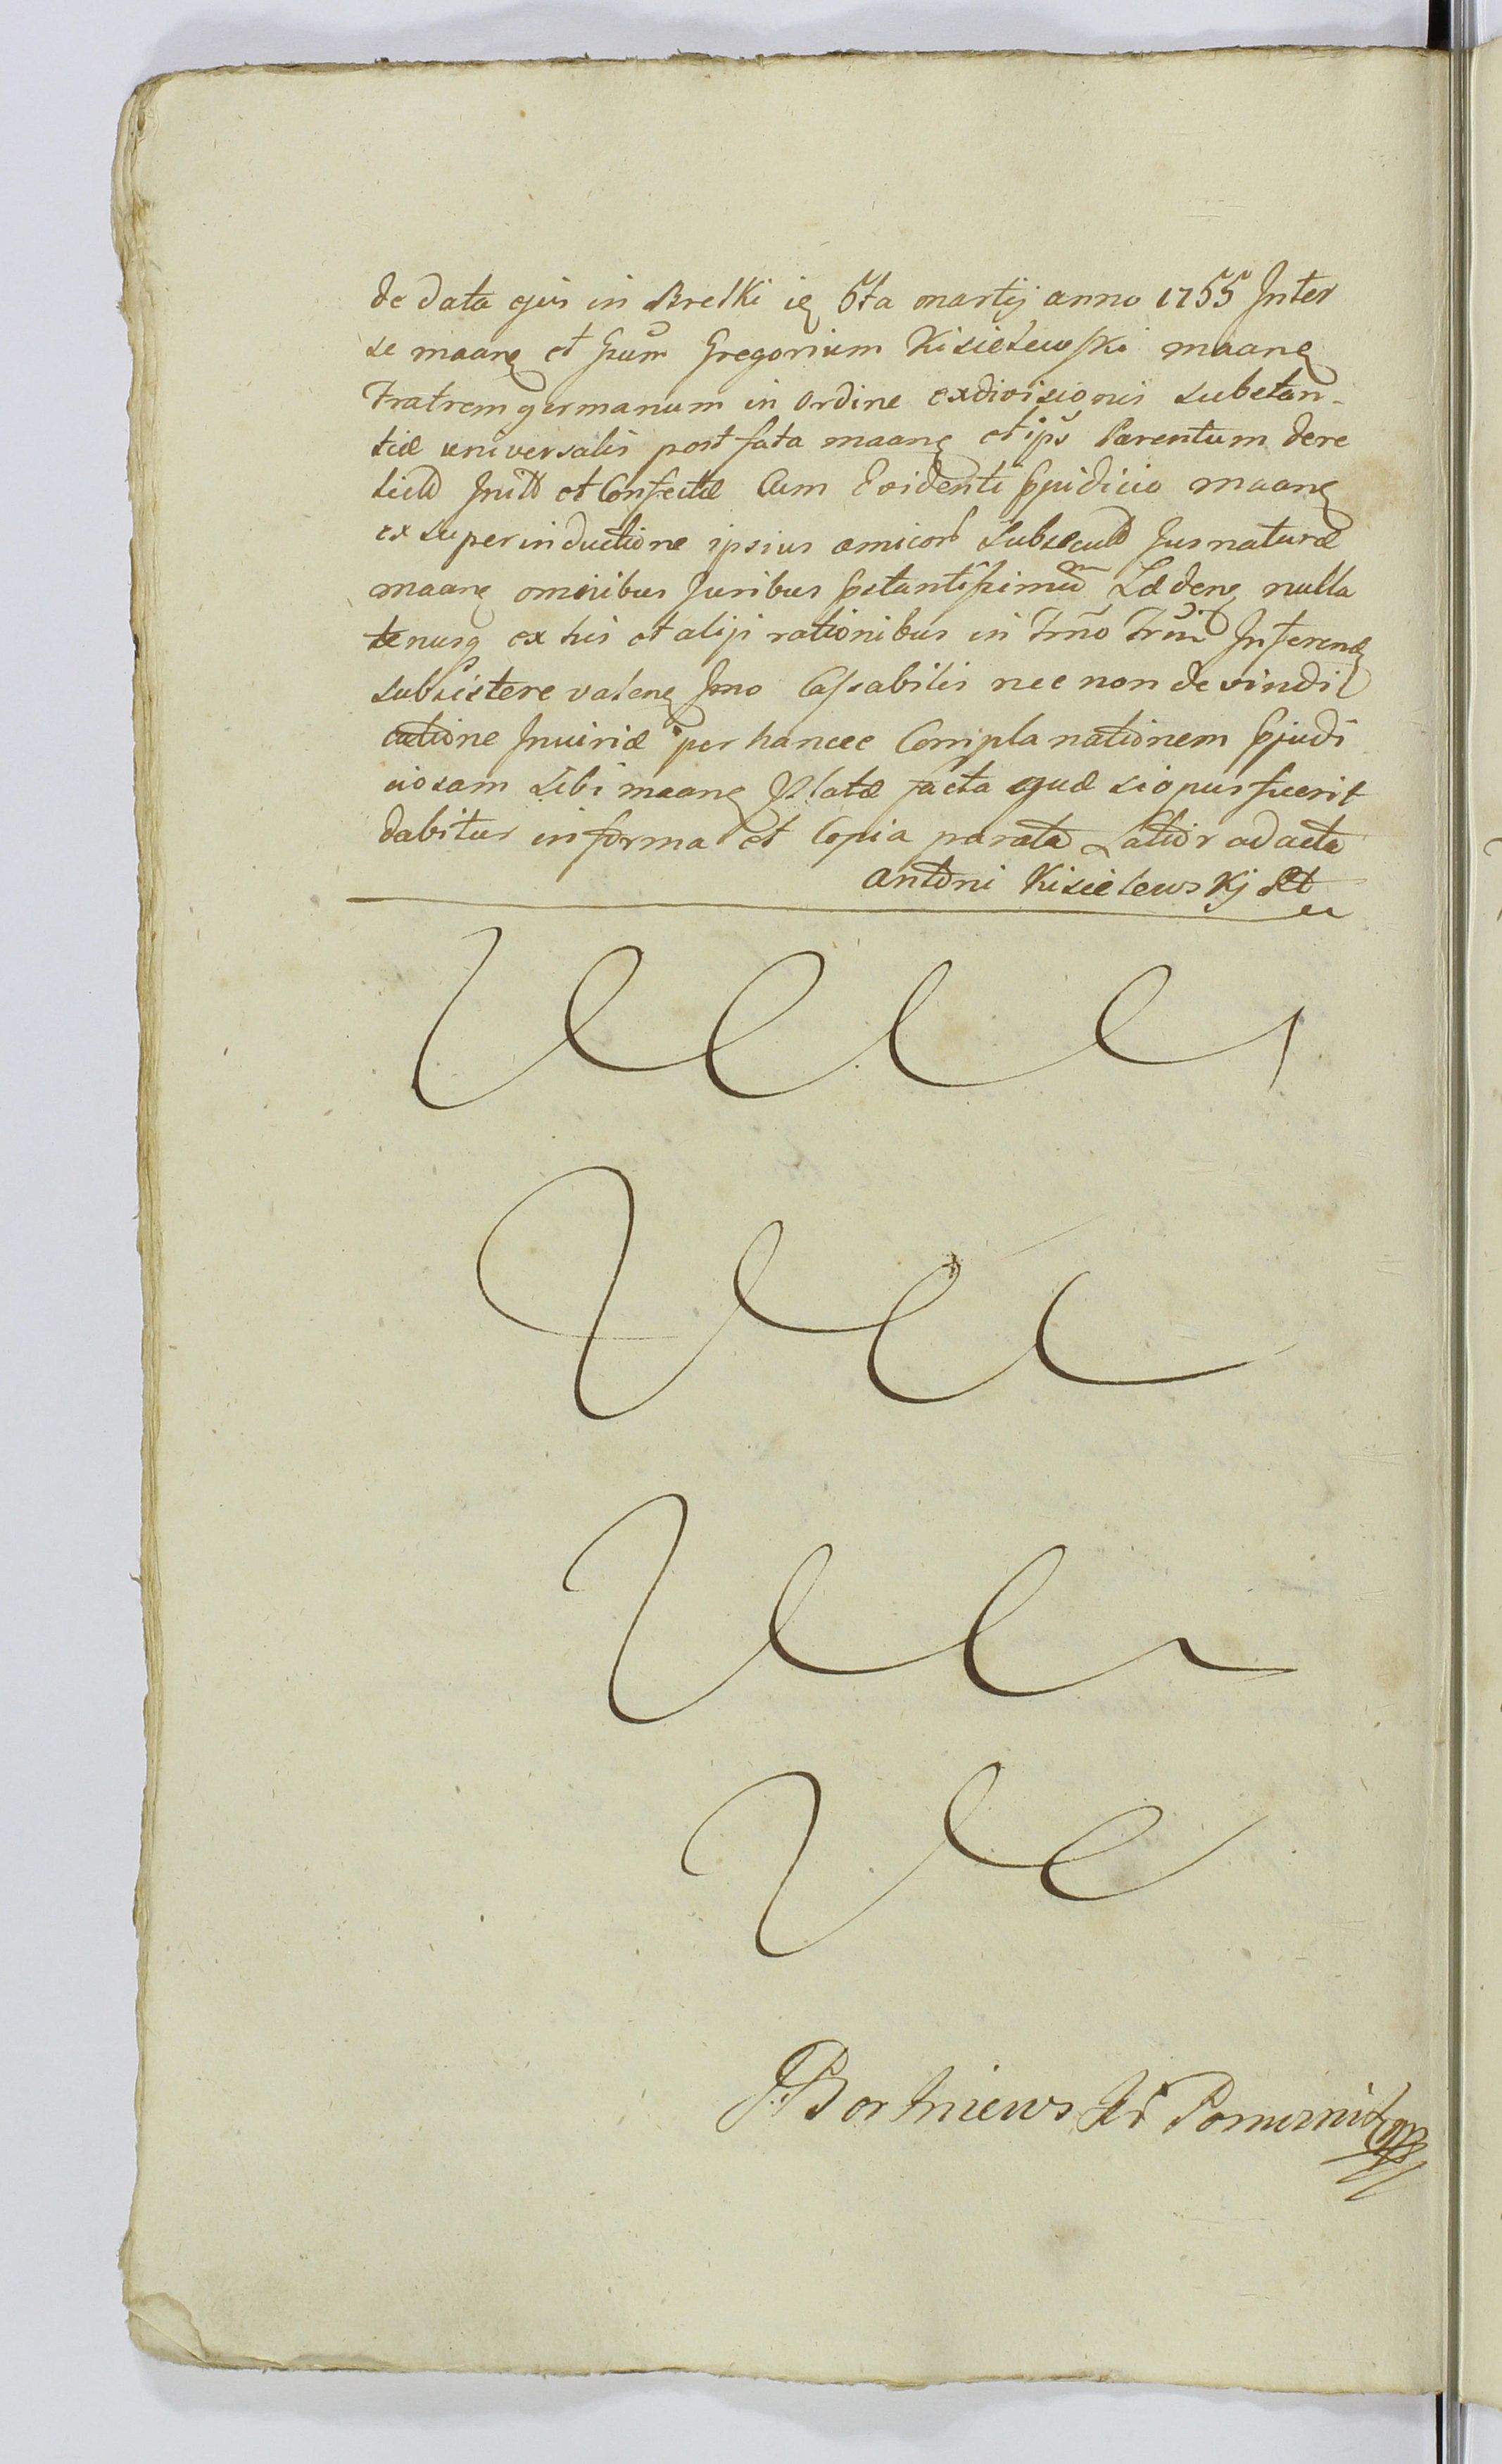 de data ejus in Brelki ię 5ta martij anno 1755 Inter
se maanę et Gnum Gregorium Kisielewski maanę
Fratrem germanum in ordine exdivisionis substan-
tiæ universalis post fata maanę et ips Parentum dere
lictæ Initt et Confectæ Cum Evidenti Ppuidicio maanę
ex superinductione ipsius amicor subsecut Jus naturæ
maanę omnibus Juribus Pstantissimum Lædenę nulla
tenusq ex his et alijs rationibus in Trno Trin Inferenę
subsistere valenę Imo Cassabilis nec non de vindi
catione Iniuriæ per hancce Complanationem Pjudi
ciosam sibi maanę Illatæ facta quæ si opus fuerit
dabitur in forma et Copia parata Latior ad acta
Antoni Kisielewskj
Bortniewski